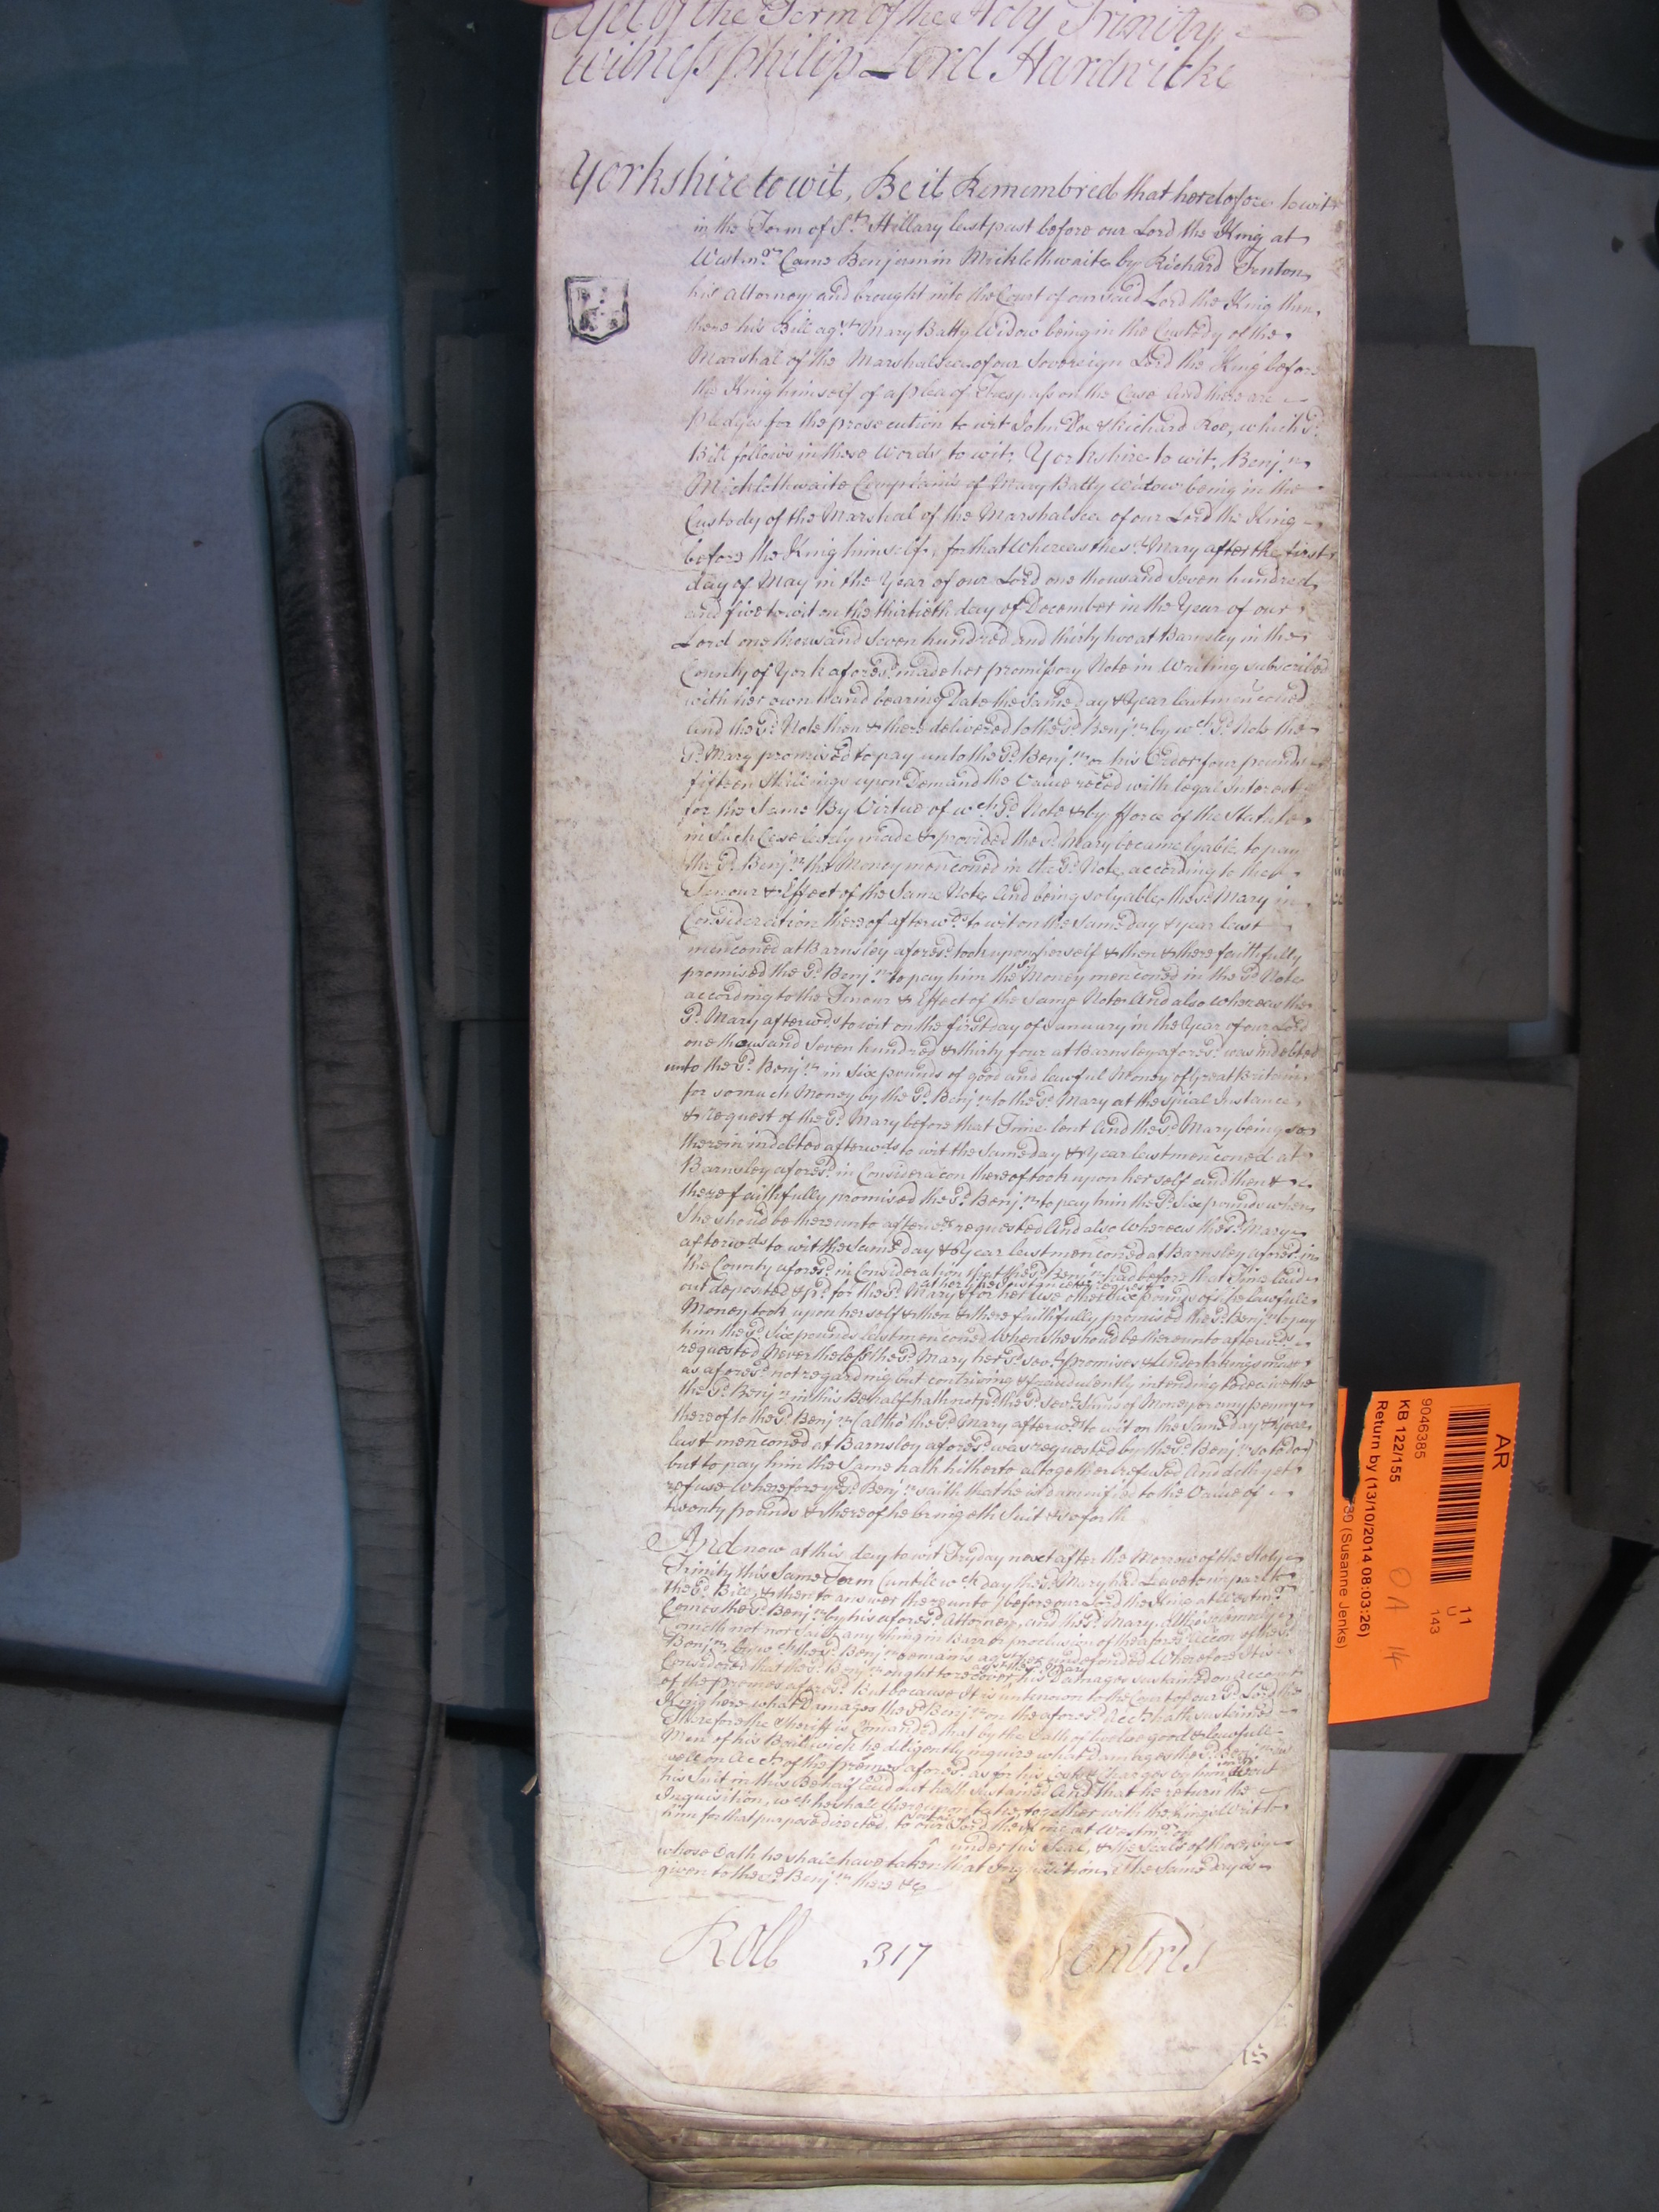 Yet of the Term of the Holy Trinity
Witness Philip Lord Hardwicke
Yorkshire to wit, Be it Remembred that heretofore to wit
in the Term of St. Hillary last past before our Lord the King at
Westmr. Came Benjamin Micklethwaite by Richard Fenton
his Attorney and brought into the Court of our said Lord the King then
there his Bill agt. Mary Batty Widow being in the Custody of the
Marshal of the Marshalsea of our Sovereign Lord the King before
the King himself of a plea of Trespass on the Case And there are
pledges for the prosecution to wit John Doe & Richard Roe, which sd.
Bill follows in these Words, to wit, Yorkshire to wit, Benjn.
Micklethwaite Complains of Mary Batty Widow being in the
Custody of the Marshal of the Marshalsea of our Lord the King
before the King himself, for that Whereas the sd. Mary after the first
day of May in the Year of our Lord one thousand Seven hundred
and five to wit on the thirtieth day of December in the Year of our
Lord one thousand Seven hundred and thirty two at Barnsley in the
County of York aforesd. made her promissory Note in Writing subscribed
with her own Hand bearing Date the same day & Year last menconed
And the sd. Note then & there delivered to the sd. Benjn. by wch. sd. Note the
sd. Mary promised to pay unto the sd. Benjn. or his Order four pounds
fifteen Shillings upon Demand the Value reced with legal Interest
for the Same By Virtue of wch. sd. Note & by fforce of the Statute
in Such Case lately made & provided the sd. Mary became lyable to pay
the sd. Benjn. the Money menconed in the sd. Note according to the
Tenour & Effect of the Same Note And being so lyable the sd. Mary in
Consideration thereof afterwds. to wit on the Same day & year last
menconed at Barnsley aforesd. took upon herself & then & there faithfully
promised the sd. Benjn. to pay him the sd. Money menconed in the sd. Note
according to the Tenour & Effect of the same Note And also whereas the
sd. Mary afterwds. to wit on the first day of January in the Year of our Lord
one thousand Seven hundred & thirty four at Barnsley aforesd. was indebted
unto the sd. Benjn. in Six pounds of good and lawful Money of Great Britain
for so much Money by the sd. Benjn. to the sd. Mary at the Spial Instance
& request of the sd. Mary before that Time lent And the sd. Mary being so
therein indebted afterwds. to wit the Same day & Year last menconed at
Barnsley aforesd. in Consideracon thereof took upon her self and then &
there faithfully promised the sd. Benjn. to pay him the sd. Six pounds when
She should be thereunto afterwds. requested And also Whereas the sd. Mary
afterwds. to wit the Same day & Year last menconed at Barnsley aforesd. in
the County aforesd. in Consideration that the sd. Benjn. had before that Time laid
out deposited & pd. for the sd. Mary & for her Use at her Spial Instance & request other Six pounds of like lawfull
Money took upon herself & then & there faithfully promised the sd. Benjn. to pay
him the sd. Six pounds last menconed When she should be thereunto afterwds.
requested Nevertheless the sd. Mary her sd. sevl. promises & Undertakings made
as aforesd. not regarding but contriving & fraudulently intending to deceive the
the sd. Benjn. in this Behalf hath not pd. the sd. sevl. Sums of Money or any penny
thereof to the sd. Benjn. (altho' the sd. Mary afterwds. to wit on the Same day & Year
last menconed at Barnsley aforesd. was requested by the sd. Benjn. so to do)
but to pay him the Same hath hitherto altogether refused And doth yet
refuse Wherefore ye. sd. Benjn. saith that he is damnified to the Value of
twenty pounds & thereof he bringeth Suit & so forth
And now at this day to wit Fryday next after the Morrow of the Holy
Trinity this Same Term (until wch. day the sd. Mary had Leave to imparle to
the sd. Bill & then to answer thereunto) before our Lord the King at Westmr.
Comes the sd. Benjn. by his aforesd. Attorney, and the sd. Mary altho' Solemnly
cometh not nor Saith any thing in Barr or preclusion of the aforesd. Accon of the sd.
Benjn. by wch. the sd. Benjn. remains agt. her undefended Wherefore It is
Considered that the sd. Benjn. ought to recover agt. the sd. Mary his Damages sustained on Account
of the premes aforesd. But because It is unknown to the Court of our sd. Lord the
King here what Damages the sd. Benjn. on the aforesd. Acct. hath sustained
Therefore the Sheriff is Comanded that by the Oath of twelve good & lawfull
Men of his Bailiwick he diligently inquire what Damages the sd. Benjn. as
well on Acct. of the premes aforesd. as for his Costs & Charges by him about
his Suit in this Behalf laid out hath sustained And that he return the
Inquisition, wch. he shall thereupon take together with the Kings Writ to
him for that purpose directed, to our Lord the King at Westmr. on
under his Seal, & the Seals of those by
whose Oath he shall have taken that Inquisition, The Same day is
given to the sd. Benjn. there &c
Roll 317 Ventris
AR
9046385
KB 122/155
Return by (13/10/2014 08:03:26)
(Susanne Jenks)
11
U
143